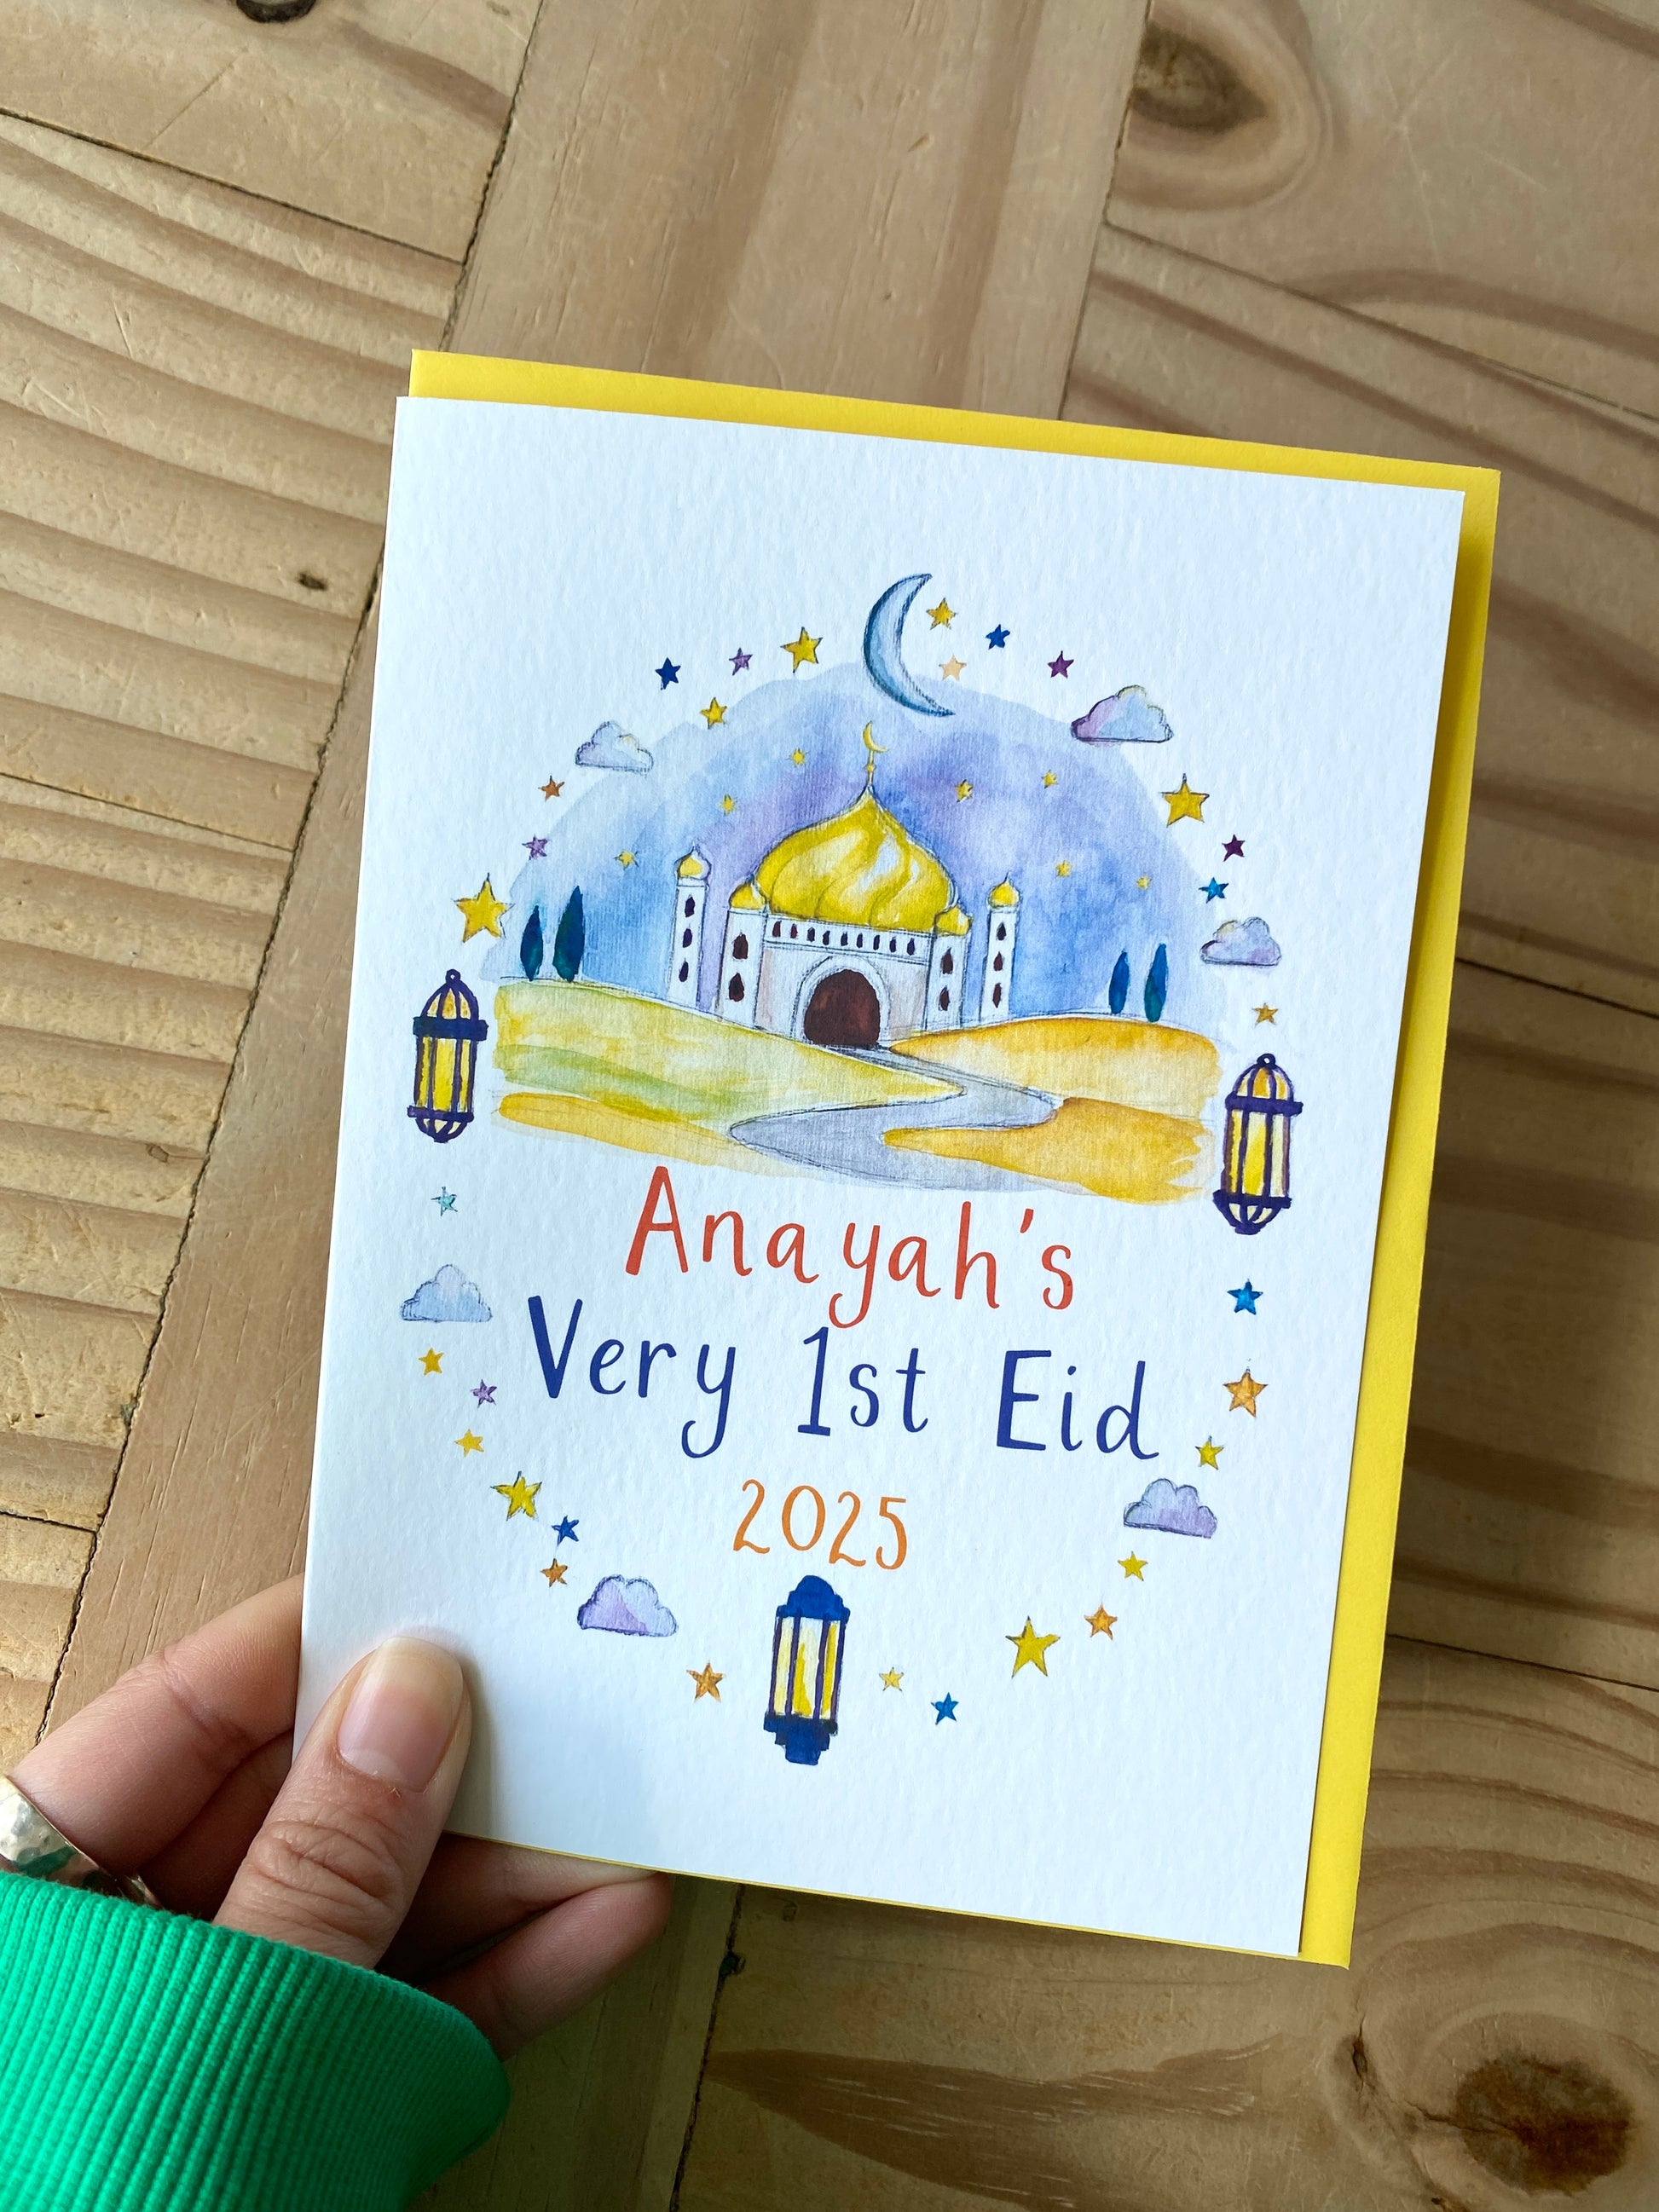 Anayah's
Very 1st Eid
2025